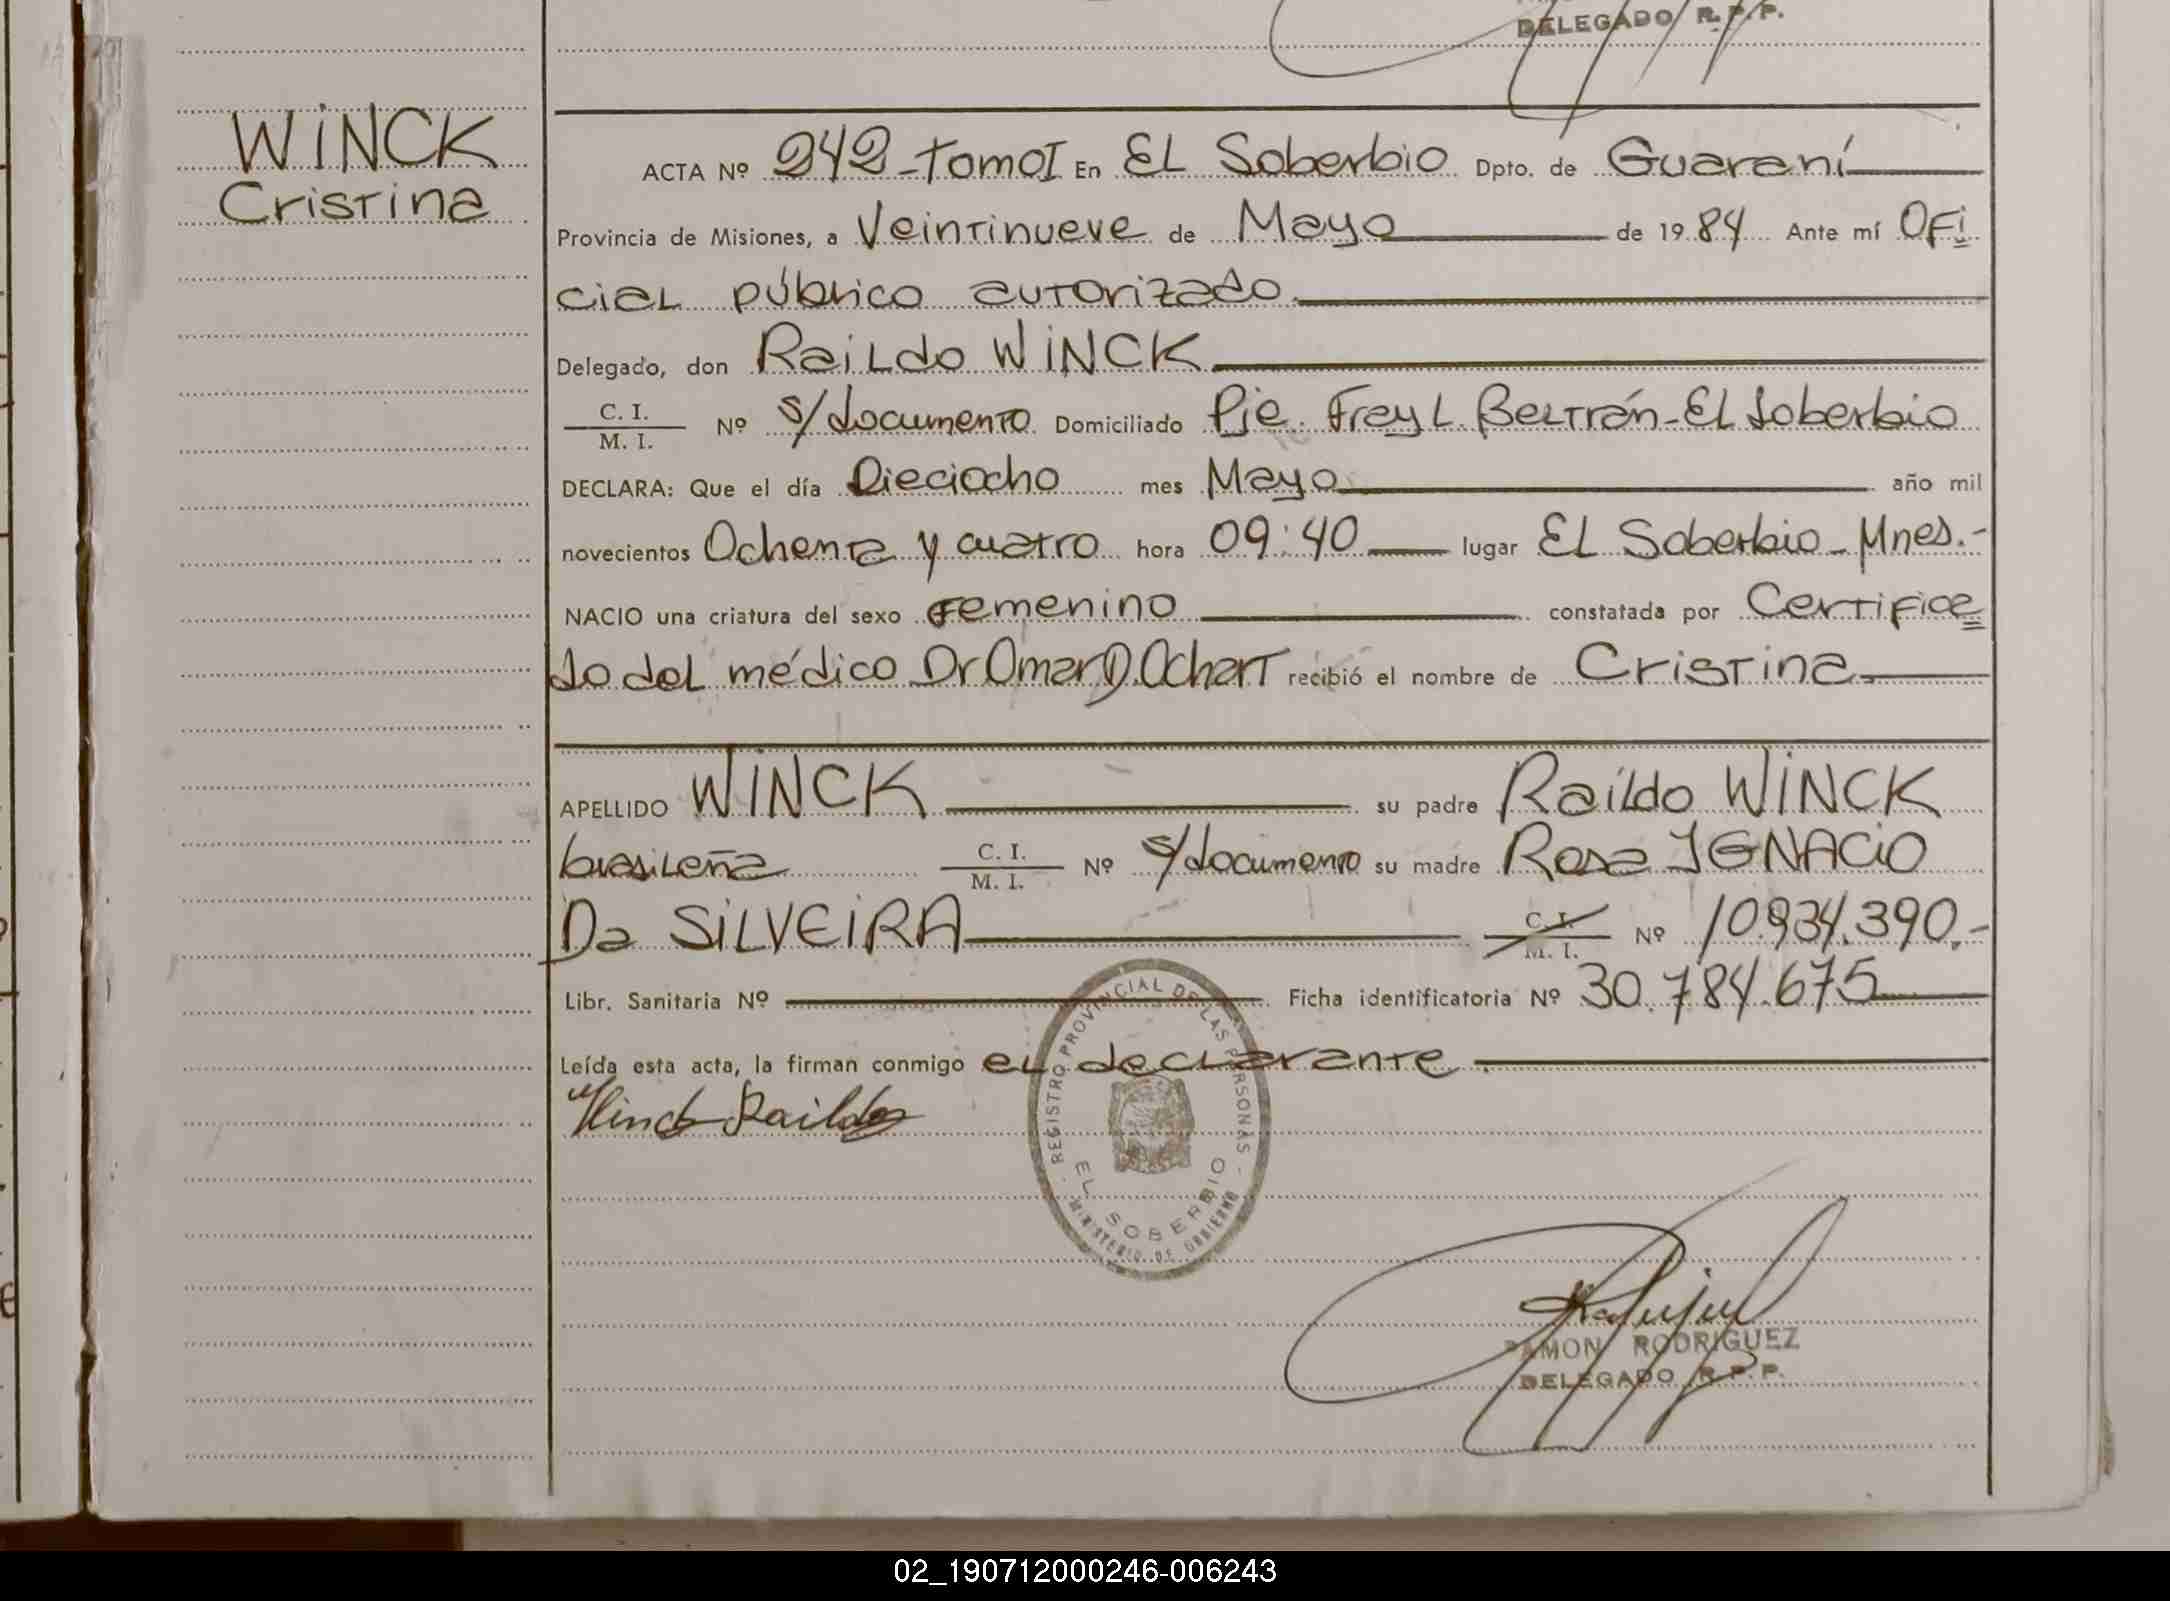 DELEGADO R.P.P.
WINCK
Cristina
ACTA Nº 242-Tomo I En EL Soberbio Dpto. de Guaraní
Provincia de Misiones, a Veintinueve de Mayo de 1984 Ante mí Ofi
cial público autorizado
Delegado, don Raildo WINCK
C. I.
M. I. Nº s/documento Domiciliado Pje. Fray L. Beltrán-El Soberbio
DECLARA: Que el día Dieciocho mes Mayo año mil
novecientos Ochenta y cuatro hora 09:40 lugar EL Soberbio-Mnes.-
NACIO una criatura del sexo femenino constatada por Certifica
do del médico Dr Omar D. Ochart recibió el nombre de Cristina
APELLIDO WINCK su padre Raíldo WINCK
brasileña C. I.
M. I. Nº s/documento su madre Rosa IGNACIO
Da SILVEIRA C. I.
M. I. Nº 10.934.390.-
Libr. Sanitaria Nº Ficha identificatoria Nº 30.784.675
Leída esta acta, la firman conmigo el declarante
Winck Raildo
REGISTRO PROVINCIAL DE LAS PERSONAS
EL SOBERBIO
MINISTERIO DE GOBIERNO
RAMON RODRIGUEZ
DELEGADO R.P.P.
02_190712000246-006243